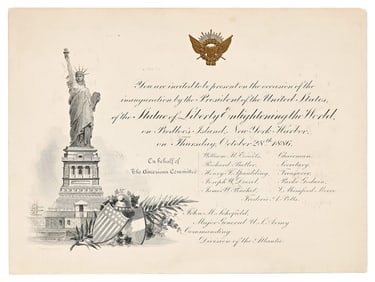 You are invited to be present on the occasion of the
inauguration by the President of the United States,
of the Statue of Liberty Enlightening the World,
on Bedloe's Island, New York Harbor,
on Thursday, October 28th 1886.
On behalf of
The American Committee
William M. Evarts, Chairman,
Richard Butler, Secretary,
Henry F. Spaulding, Treasurer,
Joseph W. Drexel, Parke Godwin,
James W. Pinchot, V. Mumford Moore
Frederic A. Potts.
John M. Schofield,
Major-General U.S. Army
Commanding
Division of the Atlantic